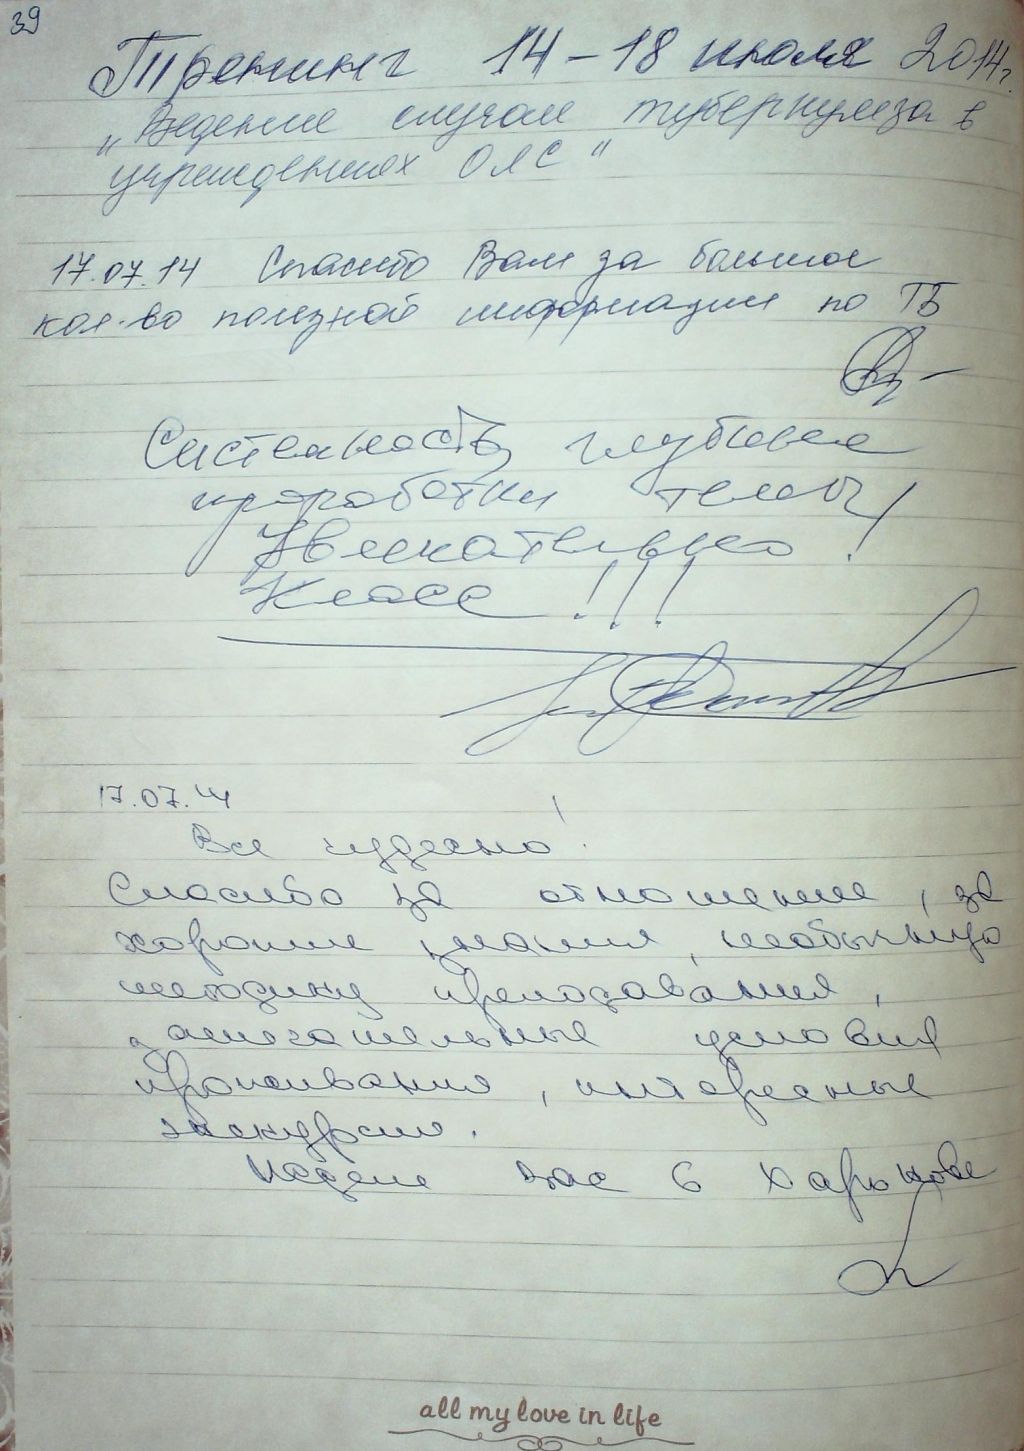 39
Тренинг 14-18 июля 2014г.
"Ведение случая туберкулеза в
учреждениях ОЛС"
17.07.14 Спасибо Вам за большое
кол-во полезной информации по ТБ
Системность, глубина
проработки темы!
Увлекательно!
Класс!!!
17.07.14
Все чудесно!
Спасибо за отношение, за
хорошие знания, необычную
методику преподавания,
замечательные условия
проживания, интересные
экскурсии.
Ждем вас в Харькове
all my love in life